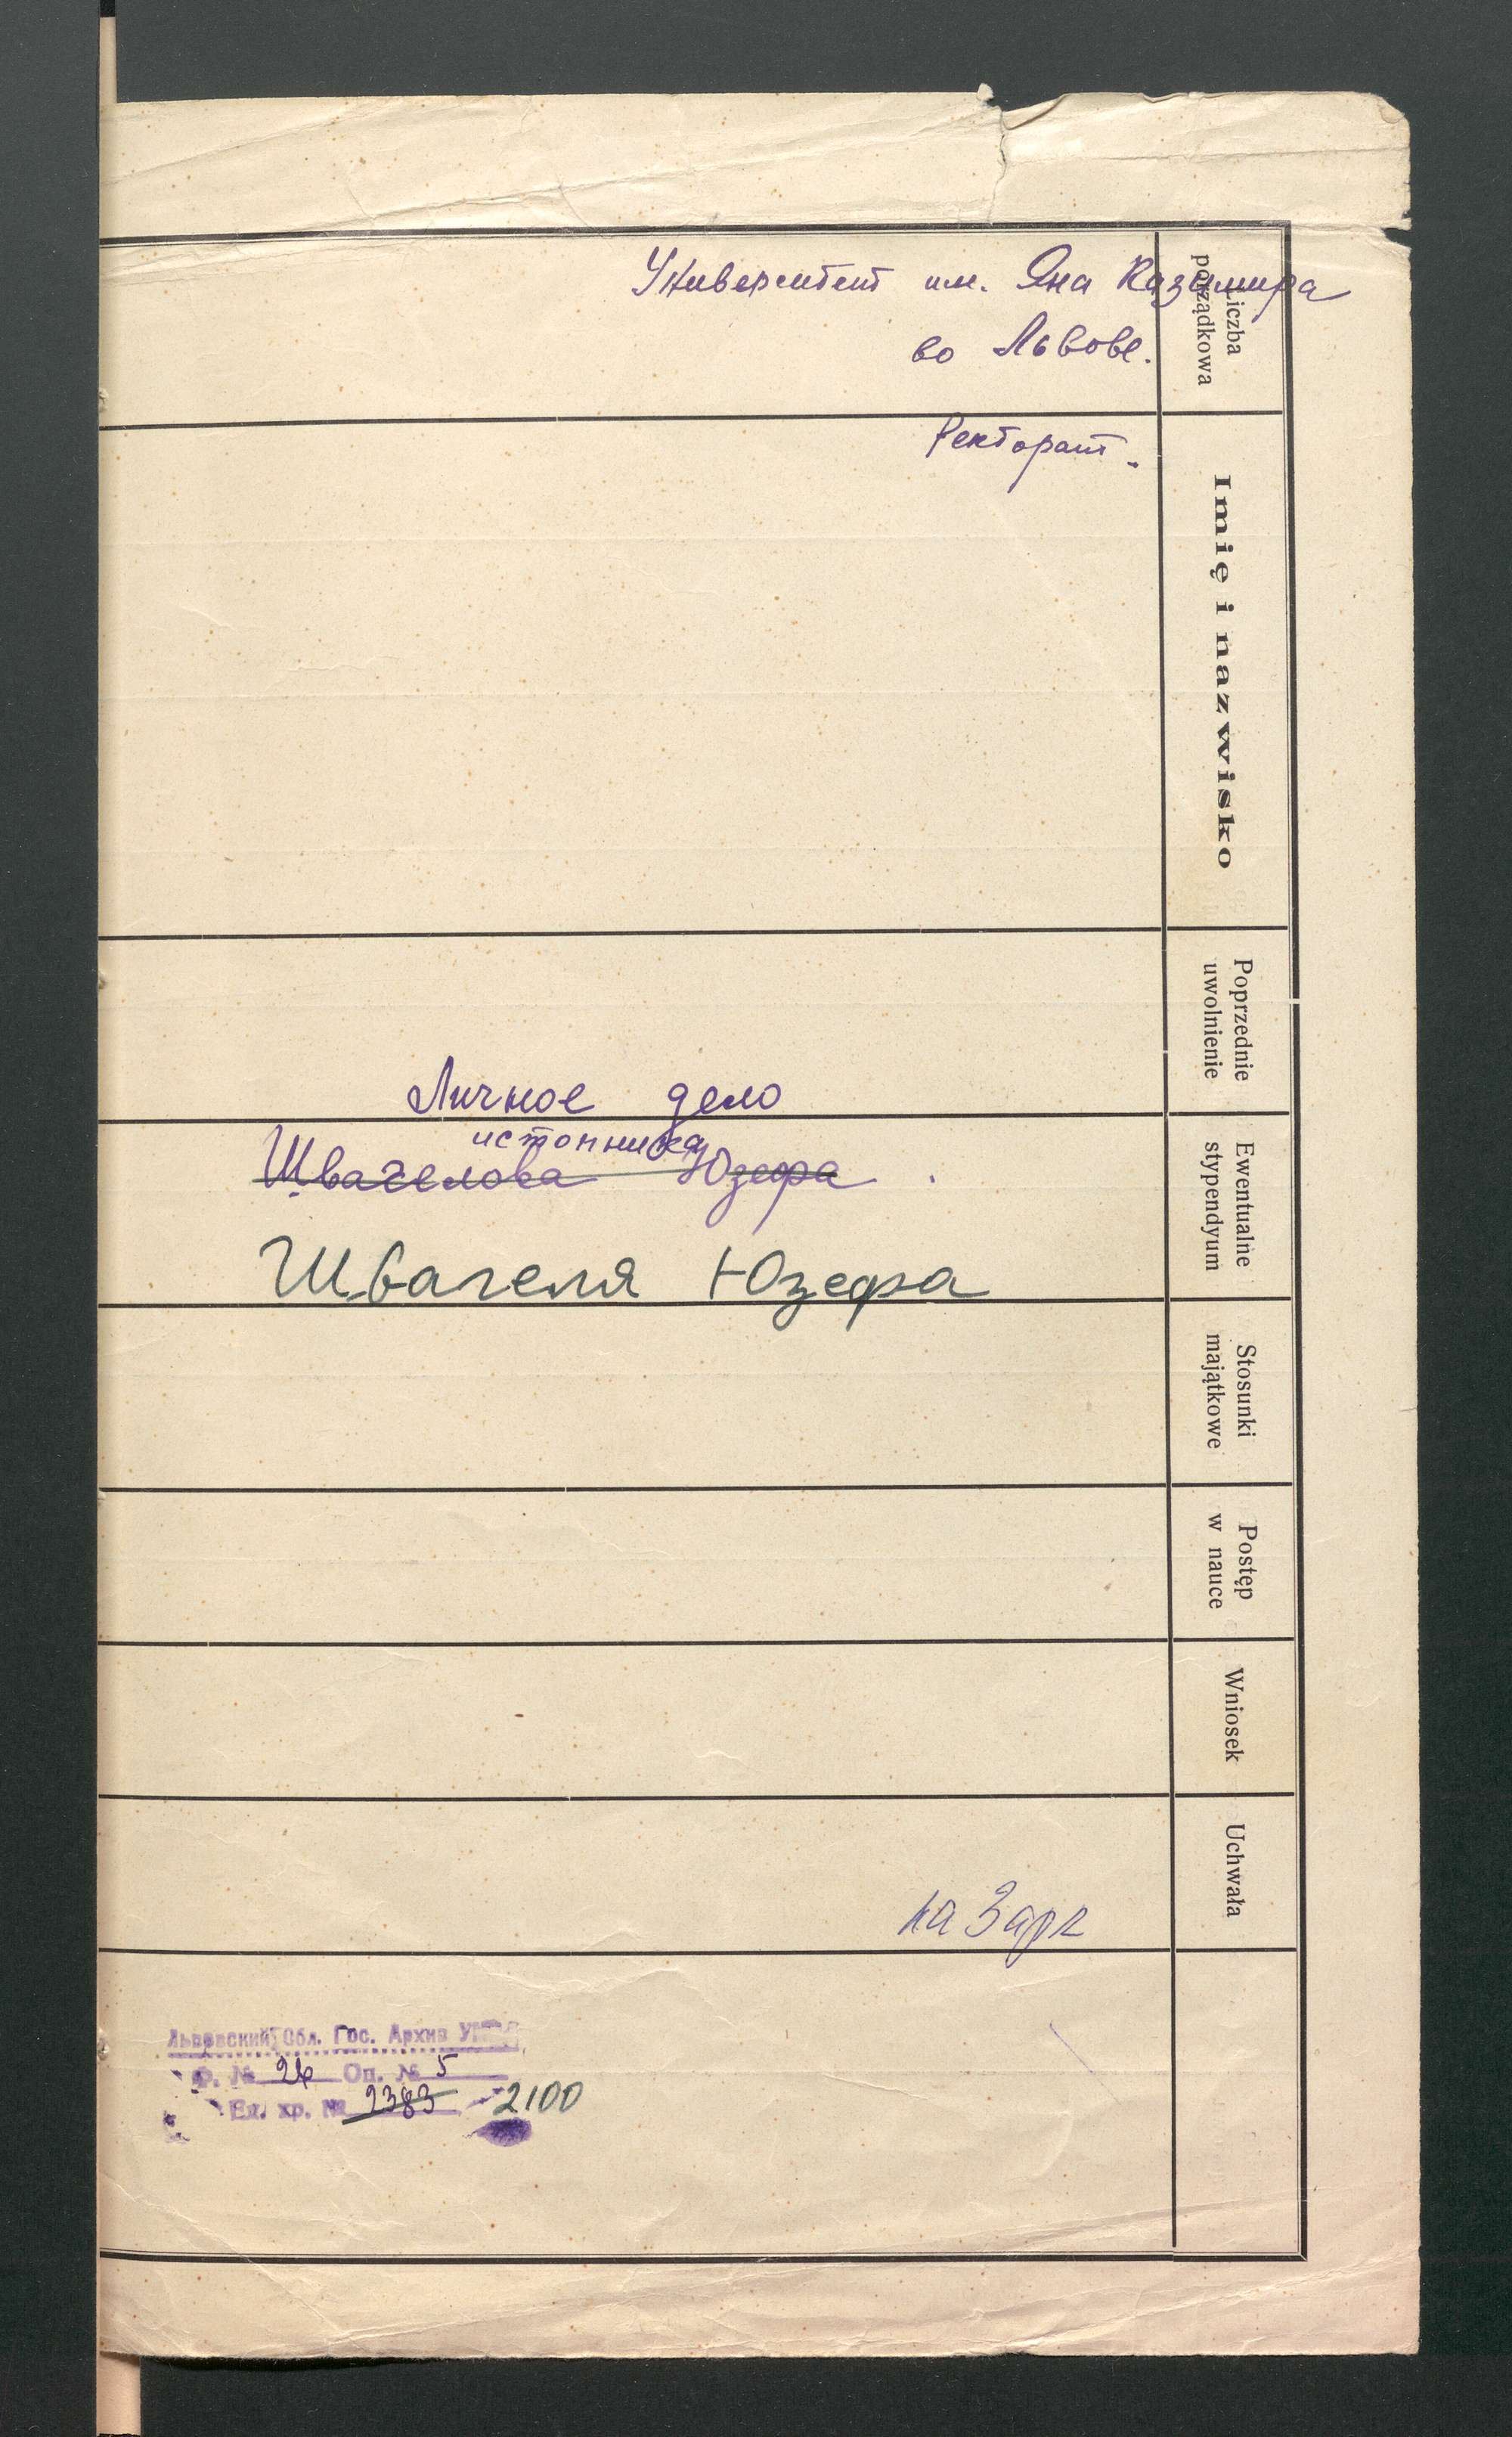 Университет им. Яна Казимира
во Львове.
Ректорат.
Liczba
porządkowa
Imię i nazwisko
Poprzednie
uwolnienie
Ewentualne
stypendyum
Stosunki
majątkowe
Postęp
w nauce
Wniosek
Uchwała
Личное дело
истопника
Швагелова Юзефа.
Швагеля Юзефа
Львовский Обл. Гос. Архив
Ф. № 26 Оп. № 5
Ед. хр. № 2383 2100